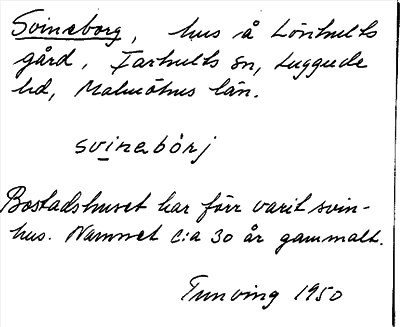 Svineborg, hus å Lönhults
gård, Farhults sn, Luggude
hd, Malmöhus län.
svinabörj
Bostadshuset har förr varit svin-
hus. Namnet c:a 30 år gammalt.
Tunving 1950